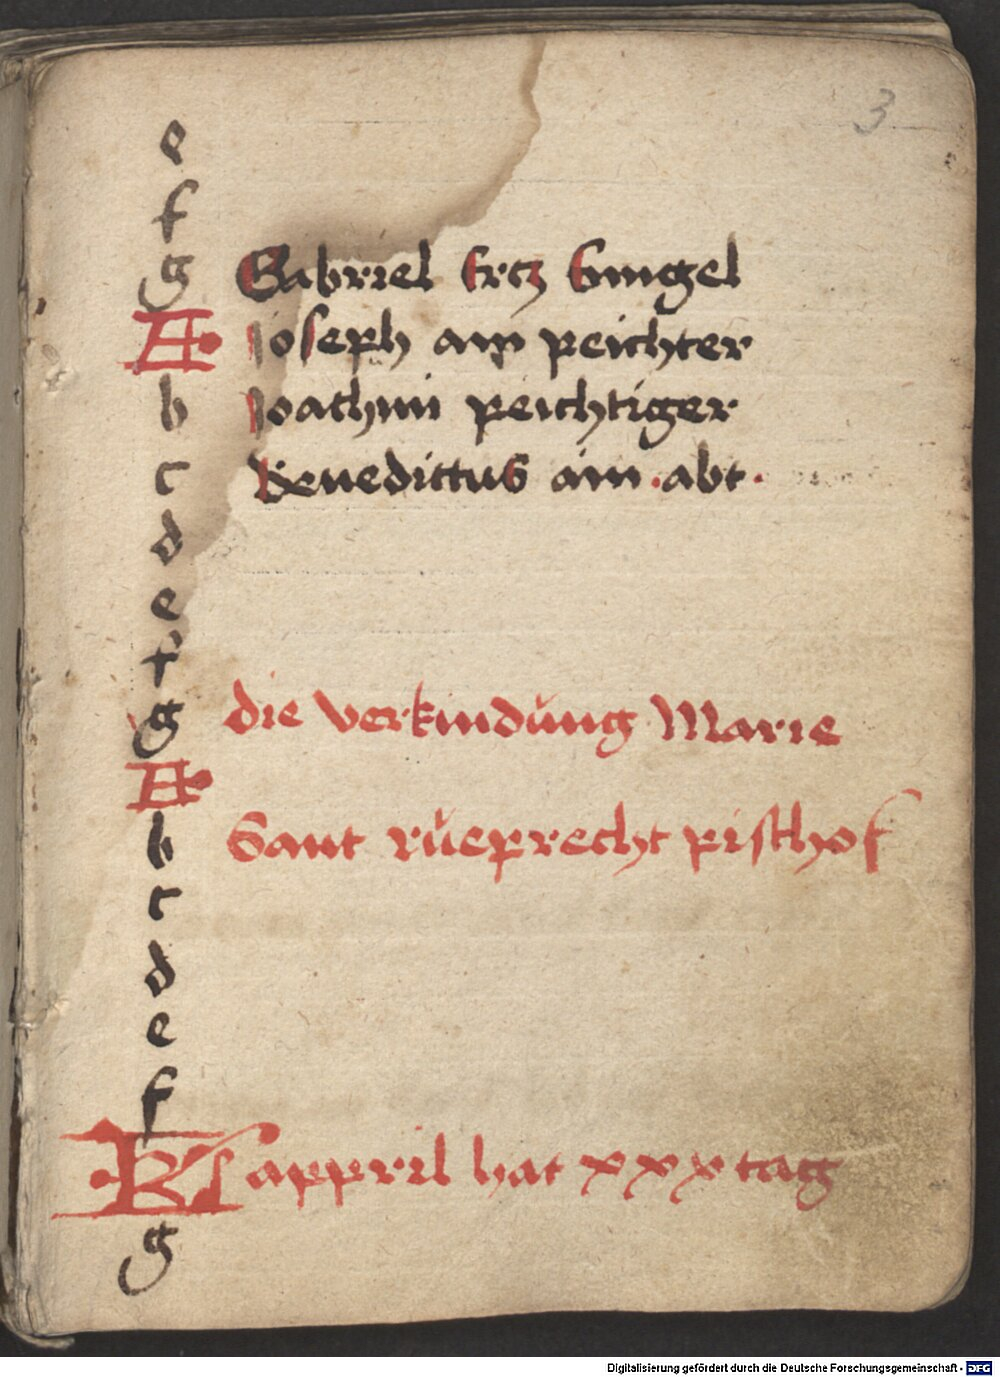 3
e
f
g Gabriel Ertz Enngel
A Joseph ain peichter
b Joachim peichtiger
c Benedictus ain abt
d
e
f
g die verkindung Marie
A
b Sant rueprecht pischof
c
d
e
f
Kl appril hat xxx tag
g
Digitalisierung gefördert durch die Deutsche Forschungsgemeinschaft - DFG